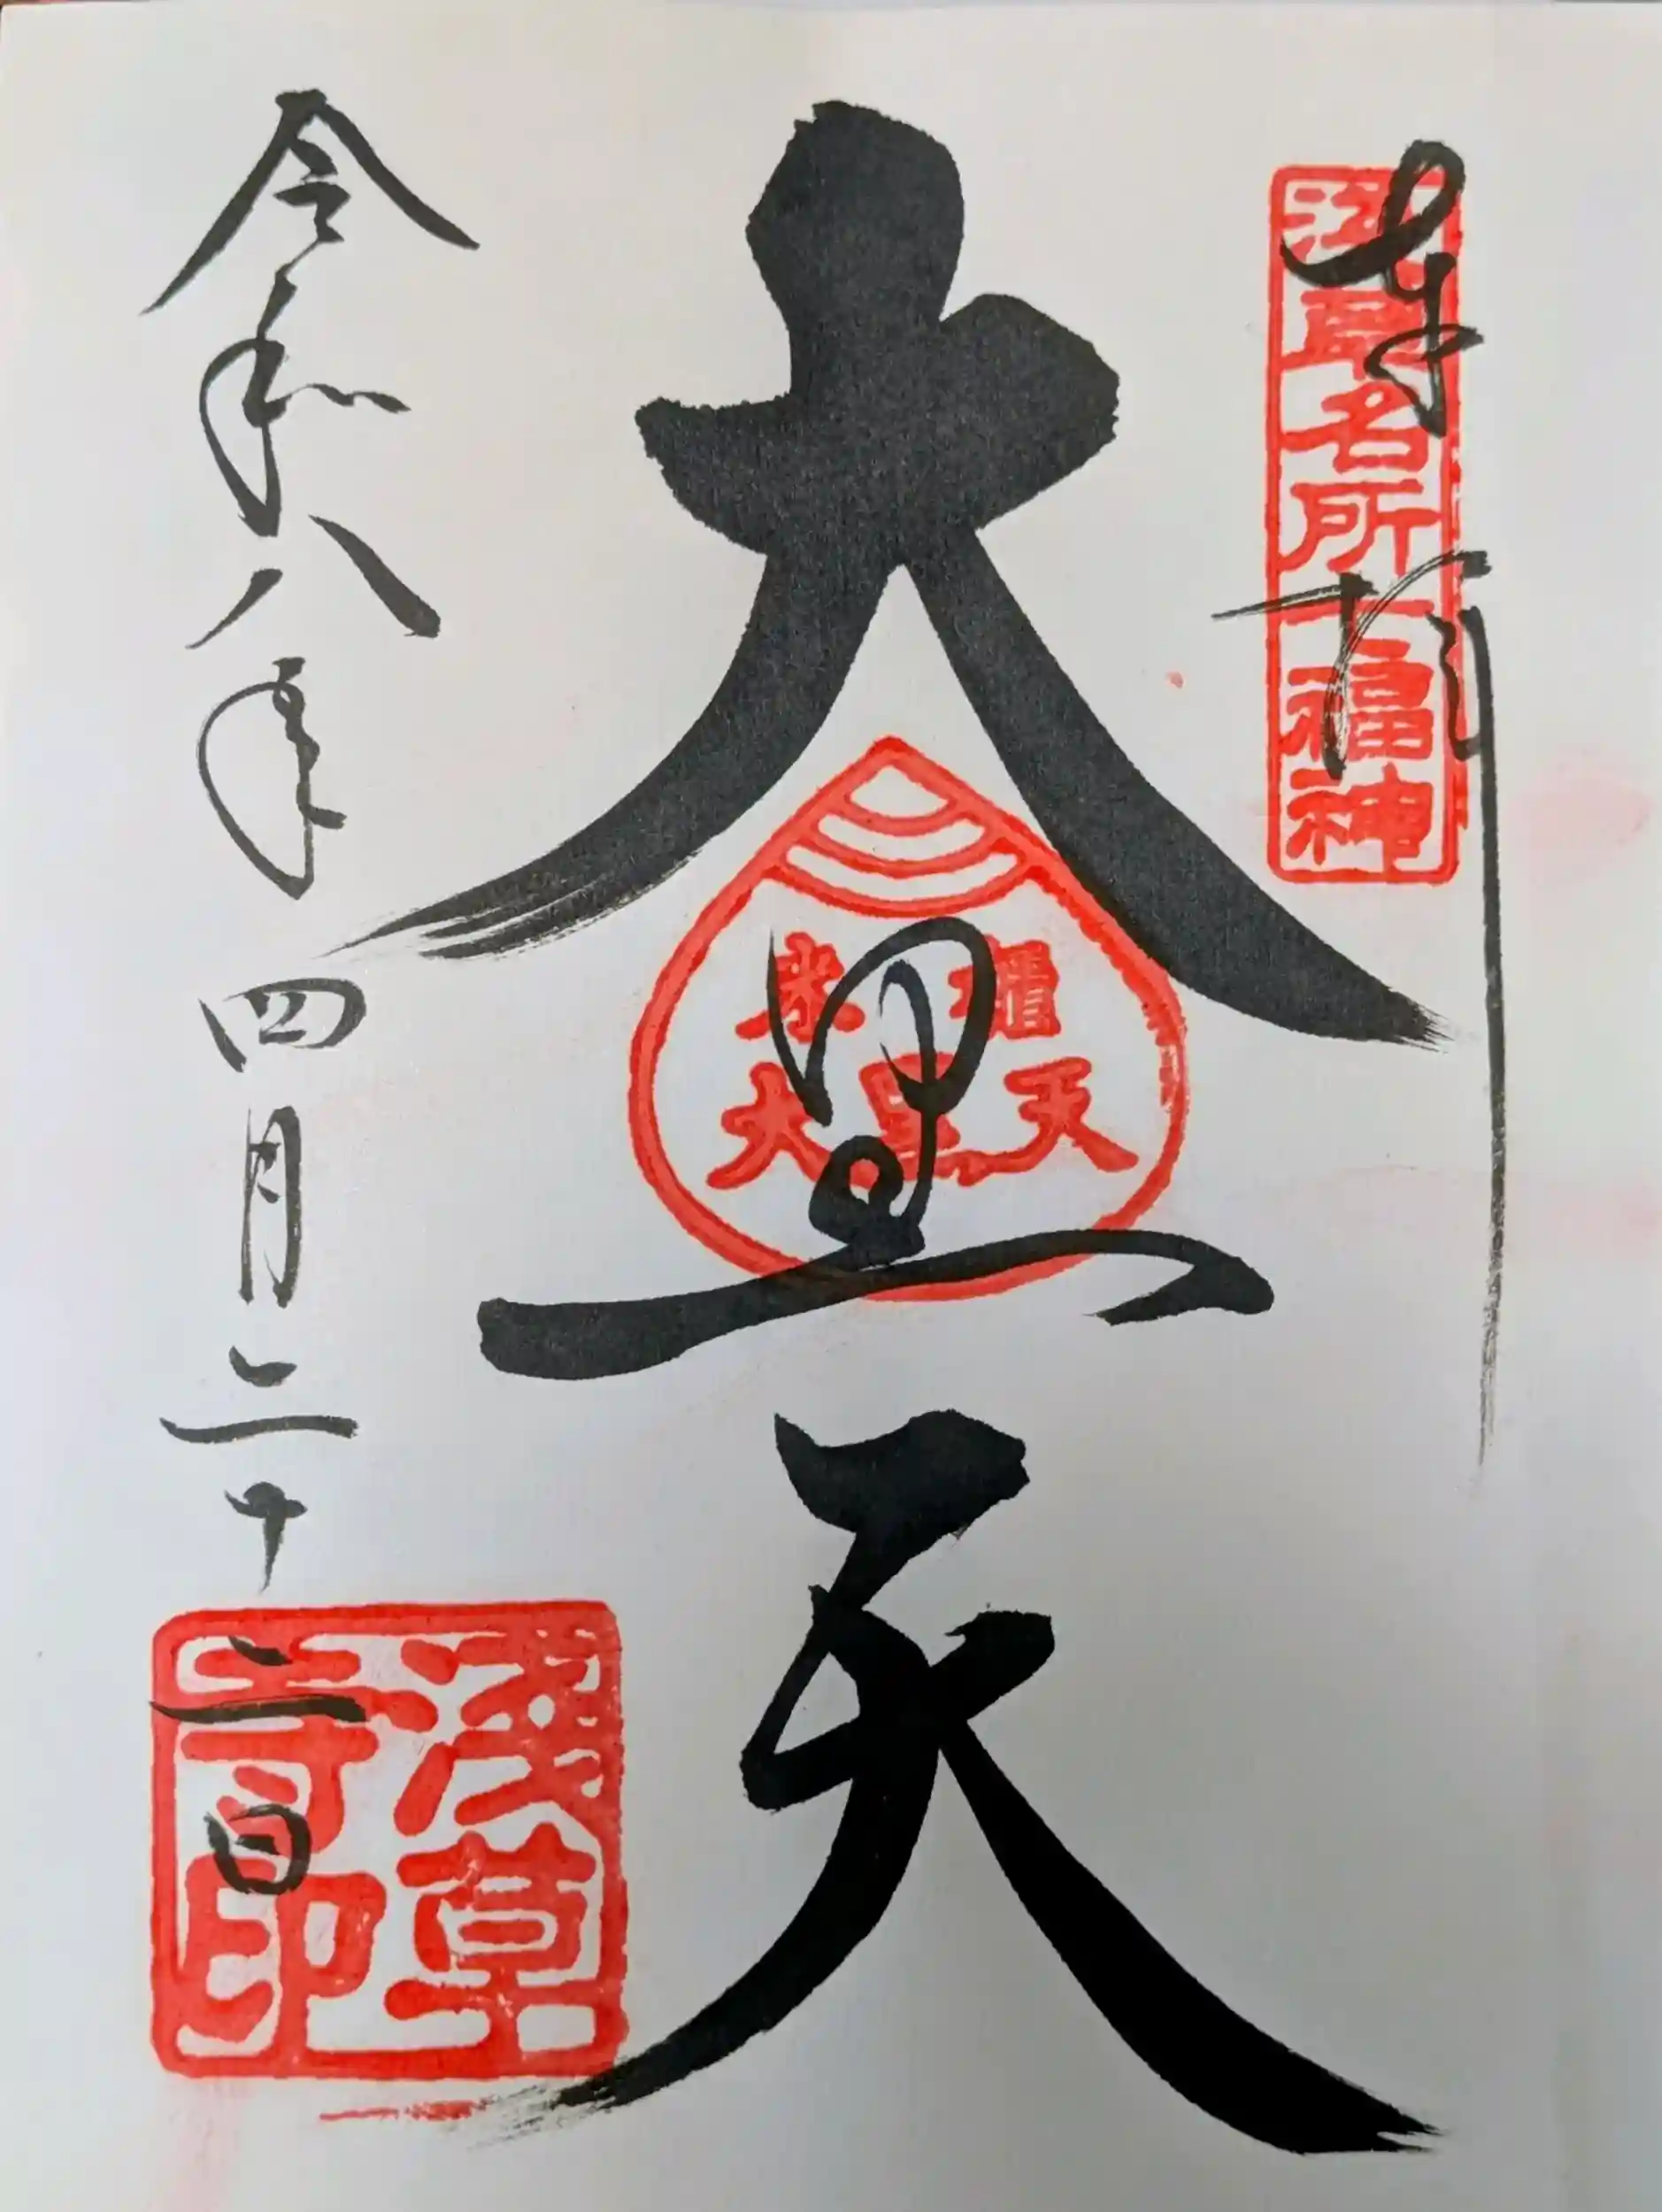 奉拝
浅草名所七福神
大黒天
米櫃
大黒天
令和八年四月二十二日
浅草
寺印